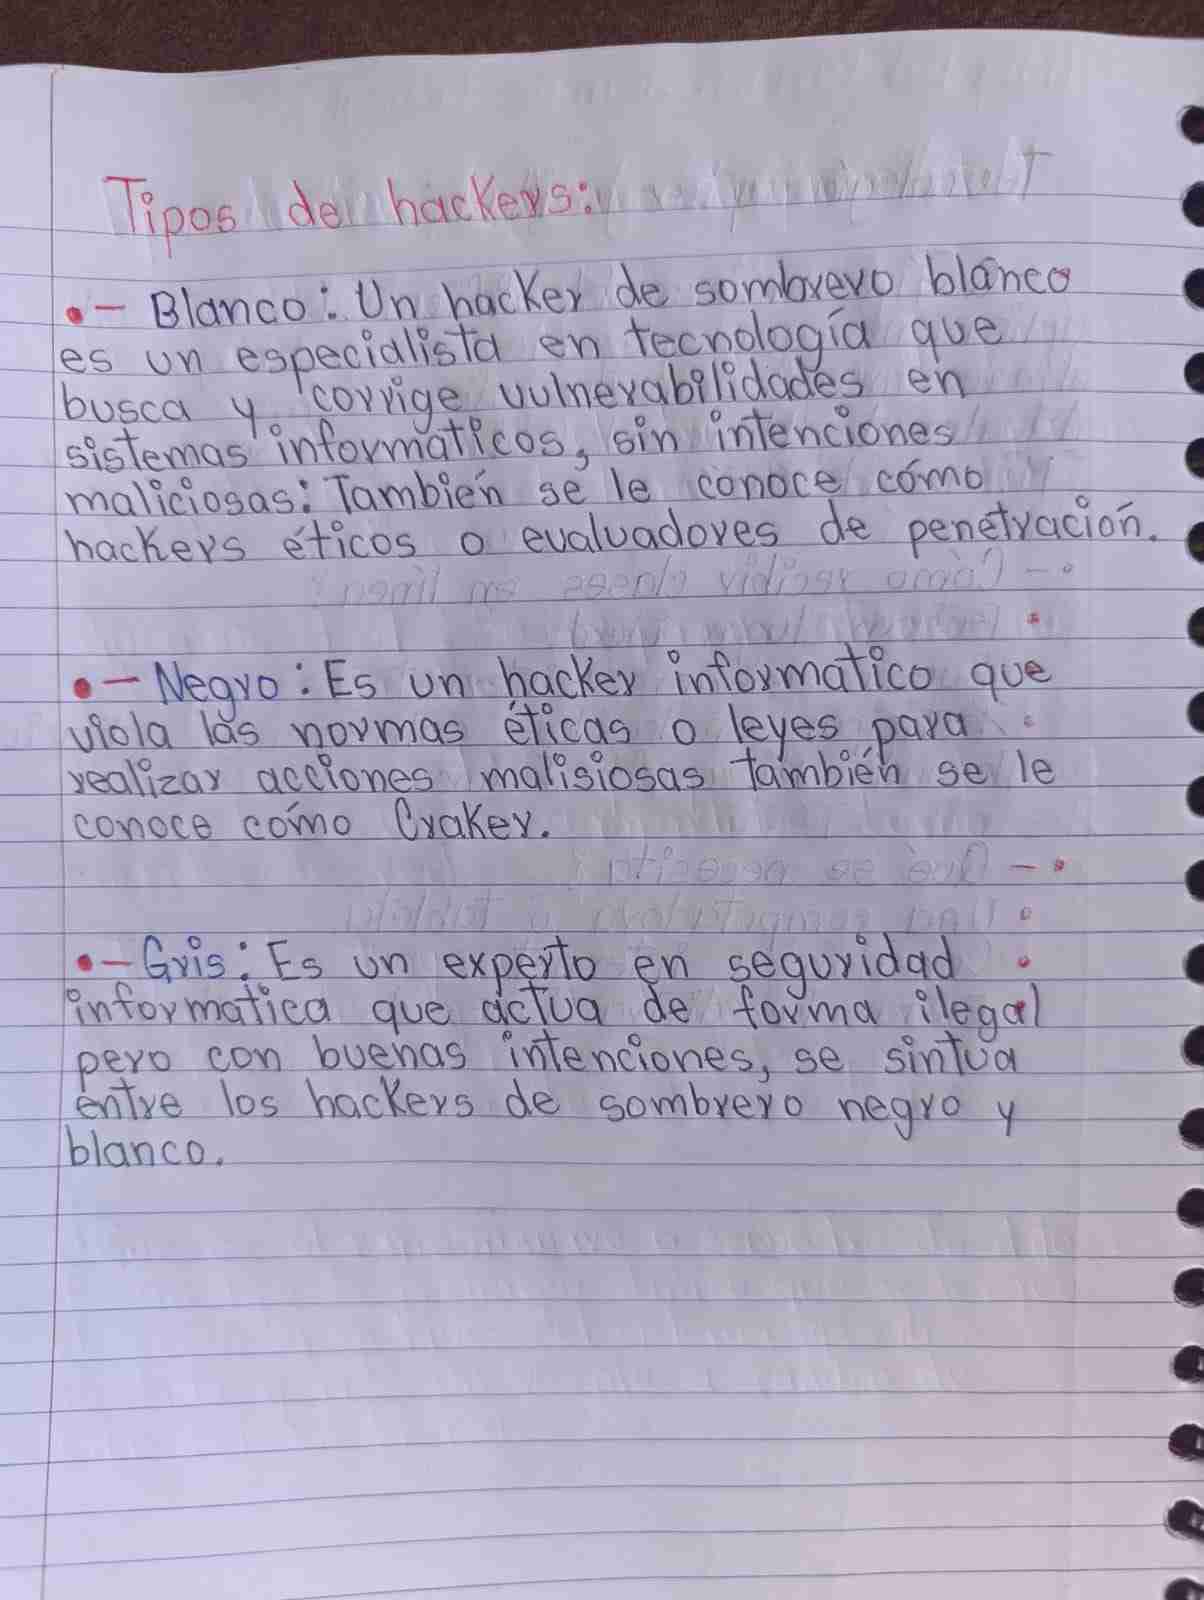 Tipos de hackers:
•- Blanco: Un hacker de sombrero blanco
es un especialista en tecnología que
busca y corrige vulnerabilidades en
sistemas informáticos, sin intenciones
maliciosas: También se le conoce cómo
hackers éticos o evaluadores de penetración.
•- Negro: Es un hacker informatico que
viola las normas éticas o leyes para
realizar acciones malisiosas también se le
conoce cómo Craker.
•- Gris: Es un experto en seguridad
informatica que actua de forma ilegal
pero con buenas intenciones, se sintua
entre los hackers de sombrero negro y
blanco.